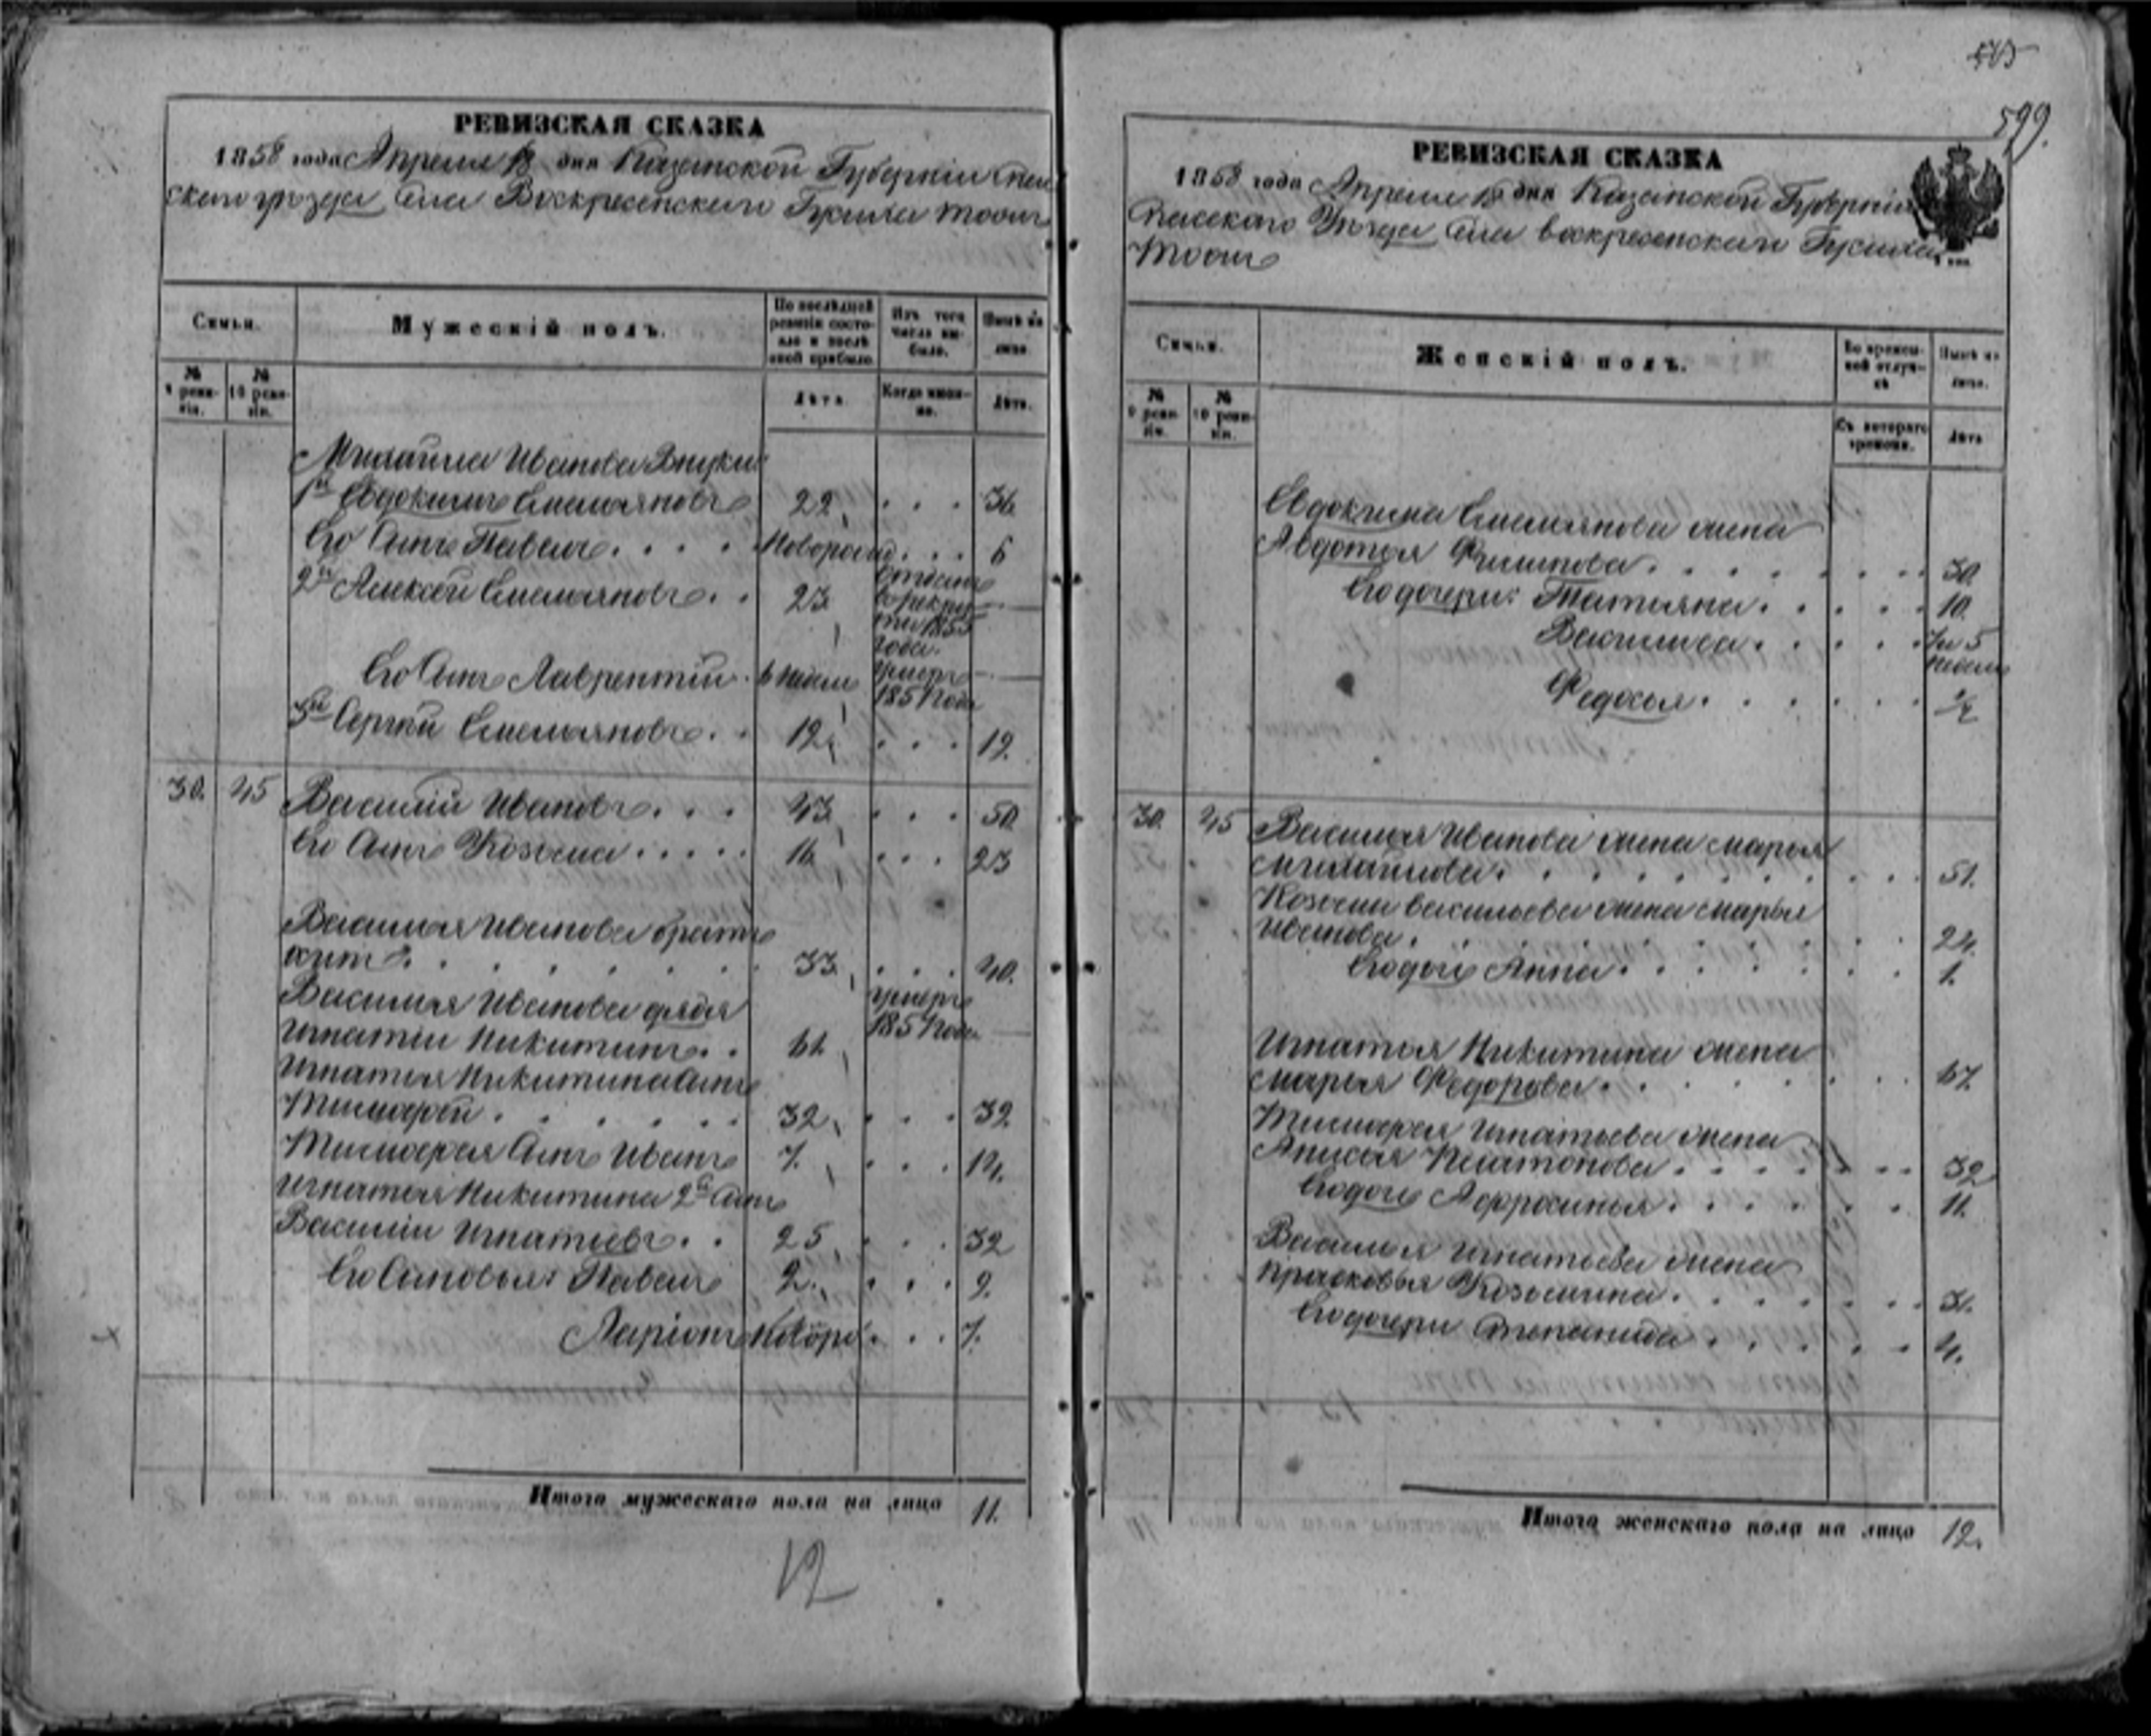 РЕВИЗСКАЯ СКАЗКА
1858 года Апреля дня Казанской Губернiи Спас
скаго уѣзда Села Воскресенскаго Тукмыкла тожъ
Семьи.
Мужескій полъ.
По послѣдней ревизіи состояло и послѣ оной прибыло
Изъ того числа выбыло.
Нынѣ на лицо.
№ 9 ревизіи.
№ 10 ревизіи.
Лѣта
Когда именно.
Лѣта.
Михайла Иванова Внуки
1й Евдокимъ Емельяновъ 22 . . . 36
Его Сынъ Павелъ . . . . Новорожд. . . 6
2й Алексей Емельяновъ . . 23 отданъ в рекруты 1855 года. —
Его Сынъ Лаврентiй . 6 недель умеръ 1851 года —
3й Сергей Емельяновъ . . 12 . . . 19.
30. 45 Василiй Ивановъ . . . 43 . . . 50
Его Сынъ Козьма . . . . . 16 . . . 23
Василья Иванова братъ
. . . . . . 33 . . . 40.
Василья Иванова дядя
Игнатiй Никитинъ . . 61 умеръ 1851 года —
Игнатья Никитина Сынъ
Тимофей . . . . . 32 . . . 39
Тимофея Сынъ Иванъ 7. . . . 14.
Игнатья Никитина 2й Сынъ
Василiй Игнатьевъ . . 25 . . . 32
Его Сыновья: Павелъ 2. . . . 9.
Ларiонъ Новоро . . . 7.
Итого мужескаго пола на лицо 11.
12
599.
РЕВИЗСКАЯ СКАЗКА
1858 года Апреля дня Казанской Губернiи
Спасскаго Уѣзда Села Воскресенскаго
тожъ
Семьи.
Женскій полъ.
Во временной отлучкѣ
Нынѣ на лицо.
№ 9 ревизіи.
№ 10 ревизіи.
Съ котораго времени.
Лѣта
Евдокима Емельянова жена
Авдотья Филипова . . . . . . . . 30
Его дочери: Татьяна . . . . . 10.
Василиса . . . . . 5 недель
Федосья . . . . . . ½
30. 45 Василья Иванова жена Марья
Михайлова . . . . . . . . . . 51.
Козьмы Васильева жена Марья
Иванова . . . . . . . . . 24.
Его дочь Анна . . . . . . . 1.
Игнатья Никитина жена
Марья Федорова . . . . . . . 67.
Тимофея Игнатьева жена
Анисья Платонова . . . . . . . 32
Его дочь Афросинья . . . . . . 11.
Василья Игнатьева жена
Прасковья Козьмина . . . . . . 31.
Его дочери Степанида . . . . . 4.
Итого женскаго пола на лицо 12.